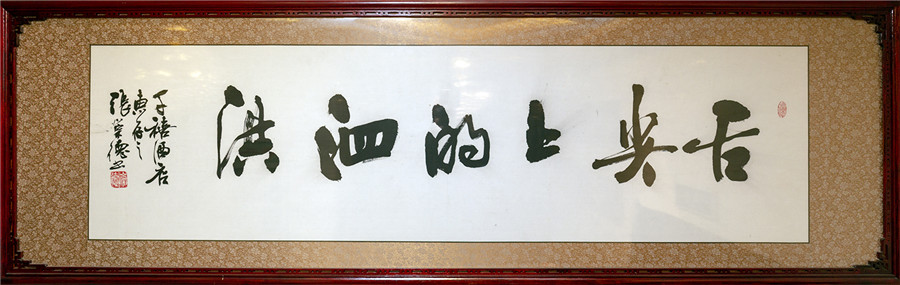 舌尖上的泗洪
千禧酒店
惠存之
張崇德书